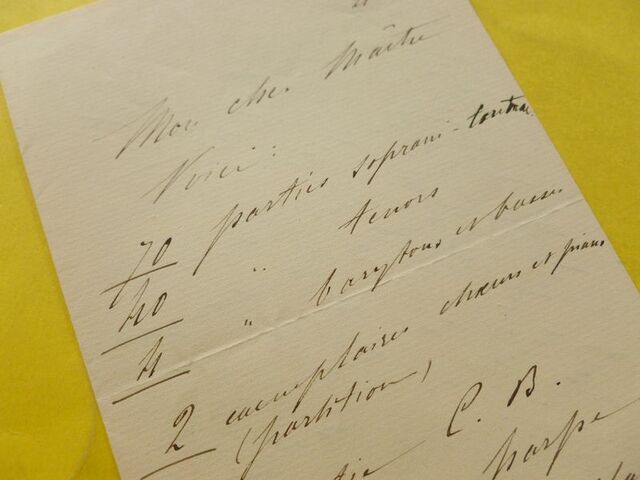 Mon cher Maître
Voici :
70 parties soprani-contral.
40 " tenors
4 " barytons et basses
2 exemplaires chœurs et piano
(partition)
C. B.
harpe